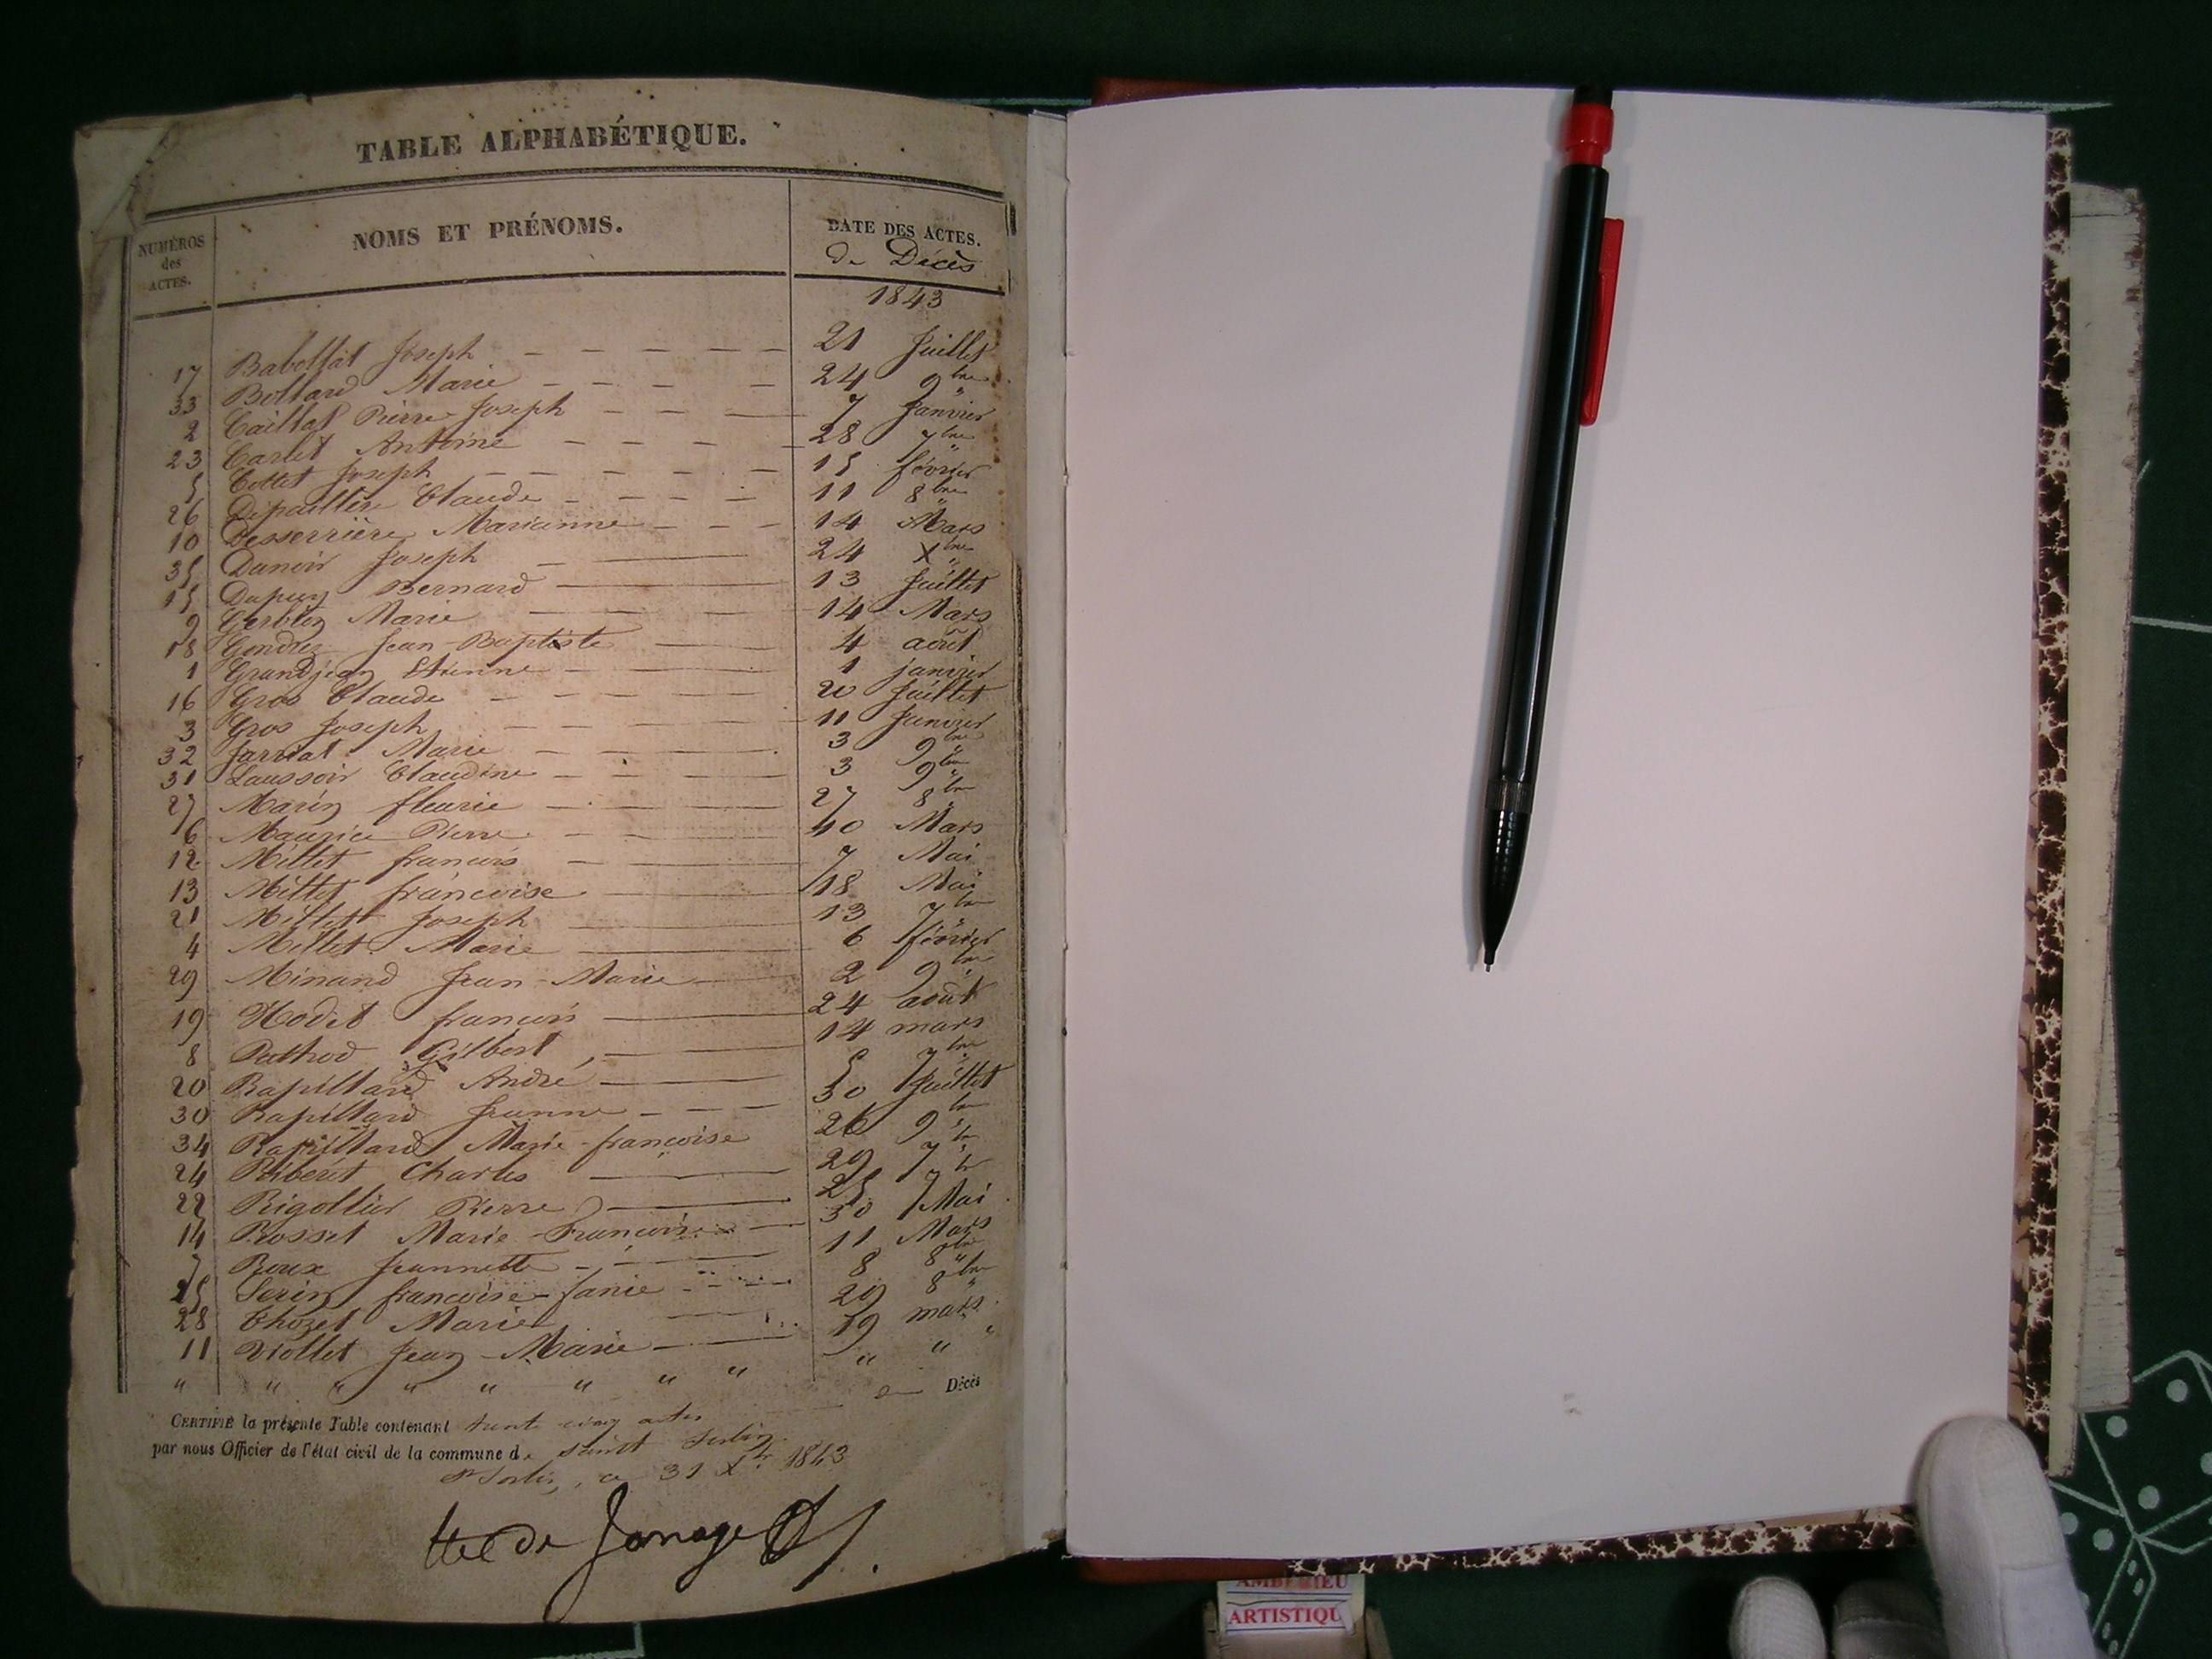 TABLE ALPHABÉTIQUE.
NUMÉROS des ACTES. NOMS ET PRÉNOMS. DATE DES ACTES.
de Décès
1843
17 Babollat Joseph 21 Juillet
33 Bottard Marie 24 9bre
2 Caillat Pierre Joseph 7 Janvier
23 Carlet Antoine 28 7bre
5 Collet Joseph 15 février
26 Claude 11 8bre
10 Desserrière Marianne 14 Mars
35 Dunoir Joseph 24 Xbre
15 Dupuy Bernard 13 Juillet
9 Marie 14 Mars
18 Gondrez Jean-Baptiste 4 août
1 Grandjean Etienne 1 janvier
16 Gros Claude 20 Juillet
3 Gros Joseph 11 Janvier
32 Jarriat Marie 3 9bre
31 Laussoir Claudine 3 9bre
27 Marin fleurie 27 8bre
6 Maurice Pierre 10 Mars
12 Millet francois 7 Mai
13 Millet francoise 18 Mai
21 Millet Joseph 13 7bre
4 Millet Marie 6 février
29 Minand Jean-Marie 2 9bre
19 Nodet francois 24 août
8 Pathod Gilbert 14 mars
20 Rapillard André 5 7bre
30 Rapillard Jeanne 30 Juillet
34 Rapillard Marie-francoise 26 9bre
24 Riberet Charles 29 7bre
22 Rigollier Pierre 25 7bre
14 Rosset Marie-Francoise 30 Mai
7 Roux Jeannette 11 Mars
25 Serin francoise-fanie 8 8bre
28 Thozet Marie 29 8bre
11 Viollet Jean-Marie 19 mars
" " " " " " " " " "
CERTIFIÉ la présente Table contenant trente cinq actes de Décès
par nous Officier de l'état civil de la commune de Saint Sorlin
St Sorlin, ce 31 Xbre 1843
de Jonage
AMBERIEU
ARTISTIQU